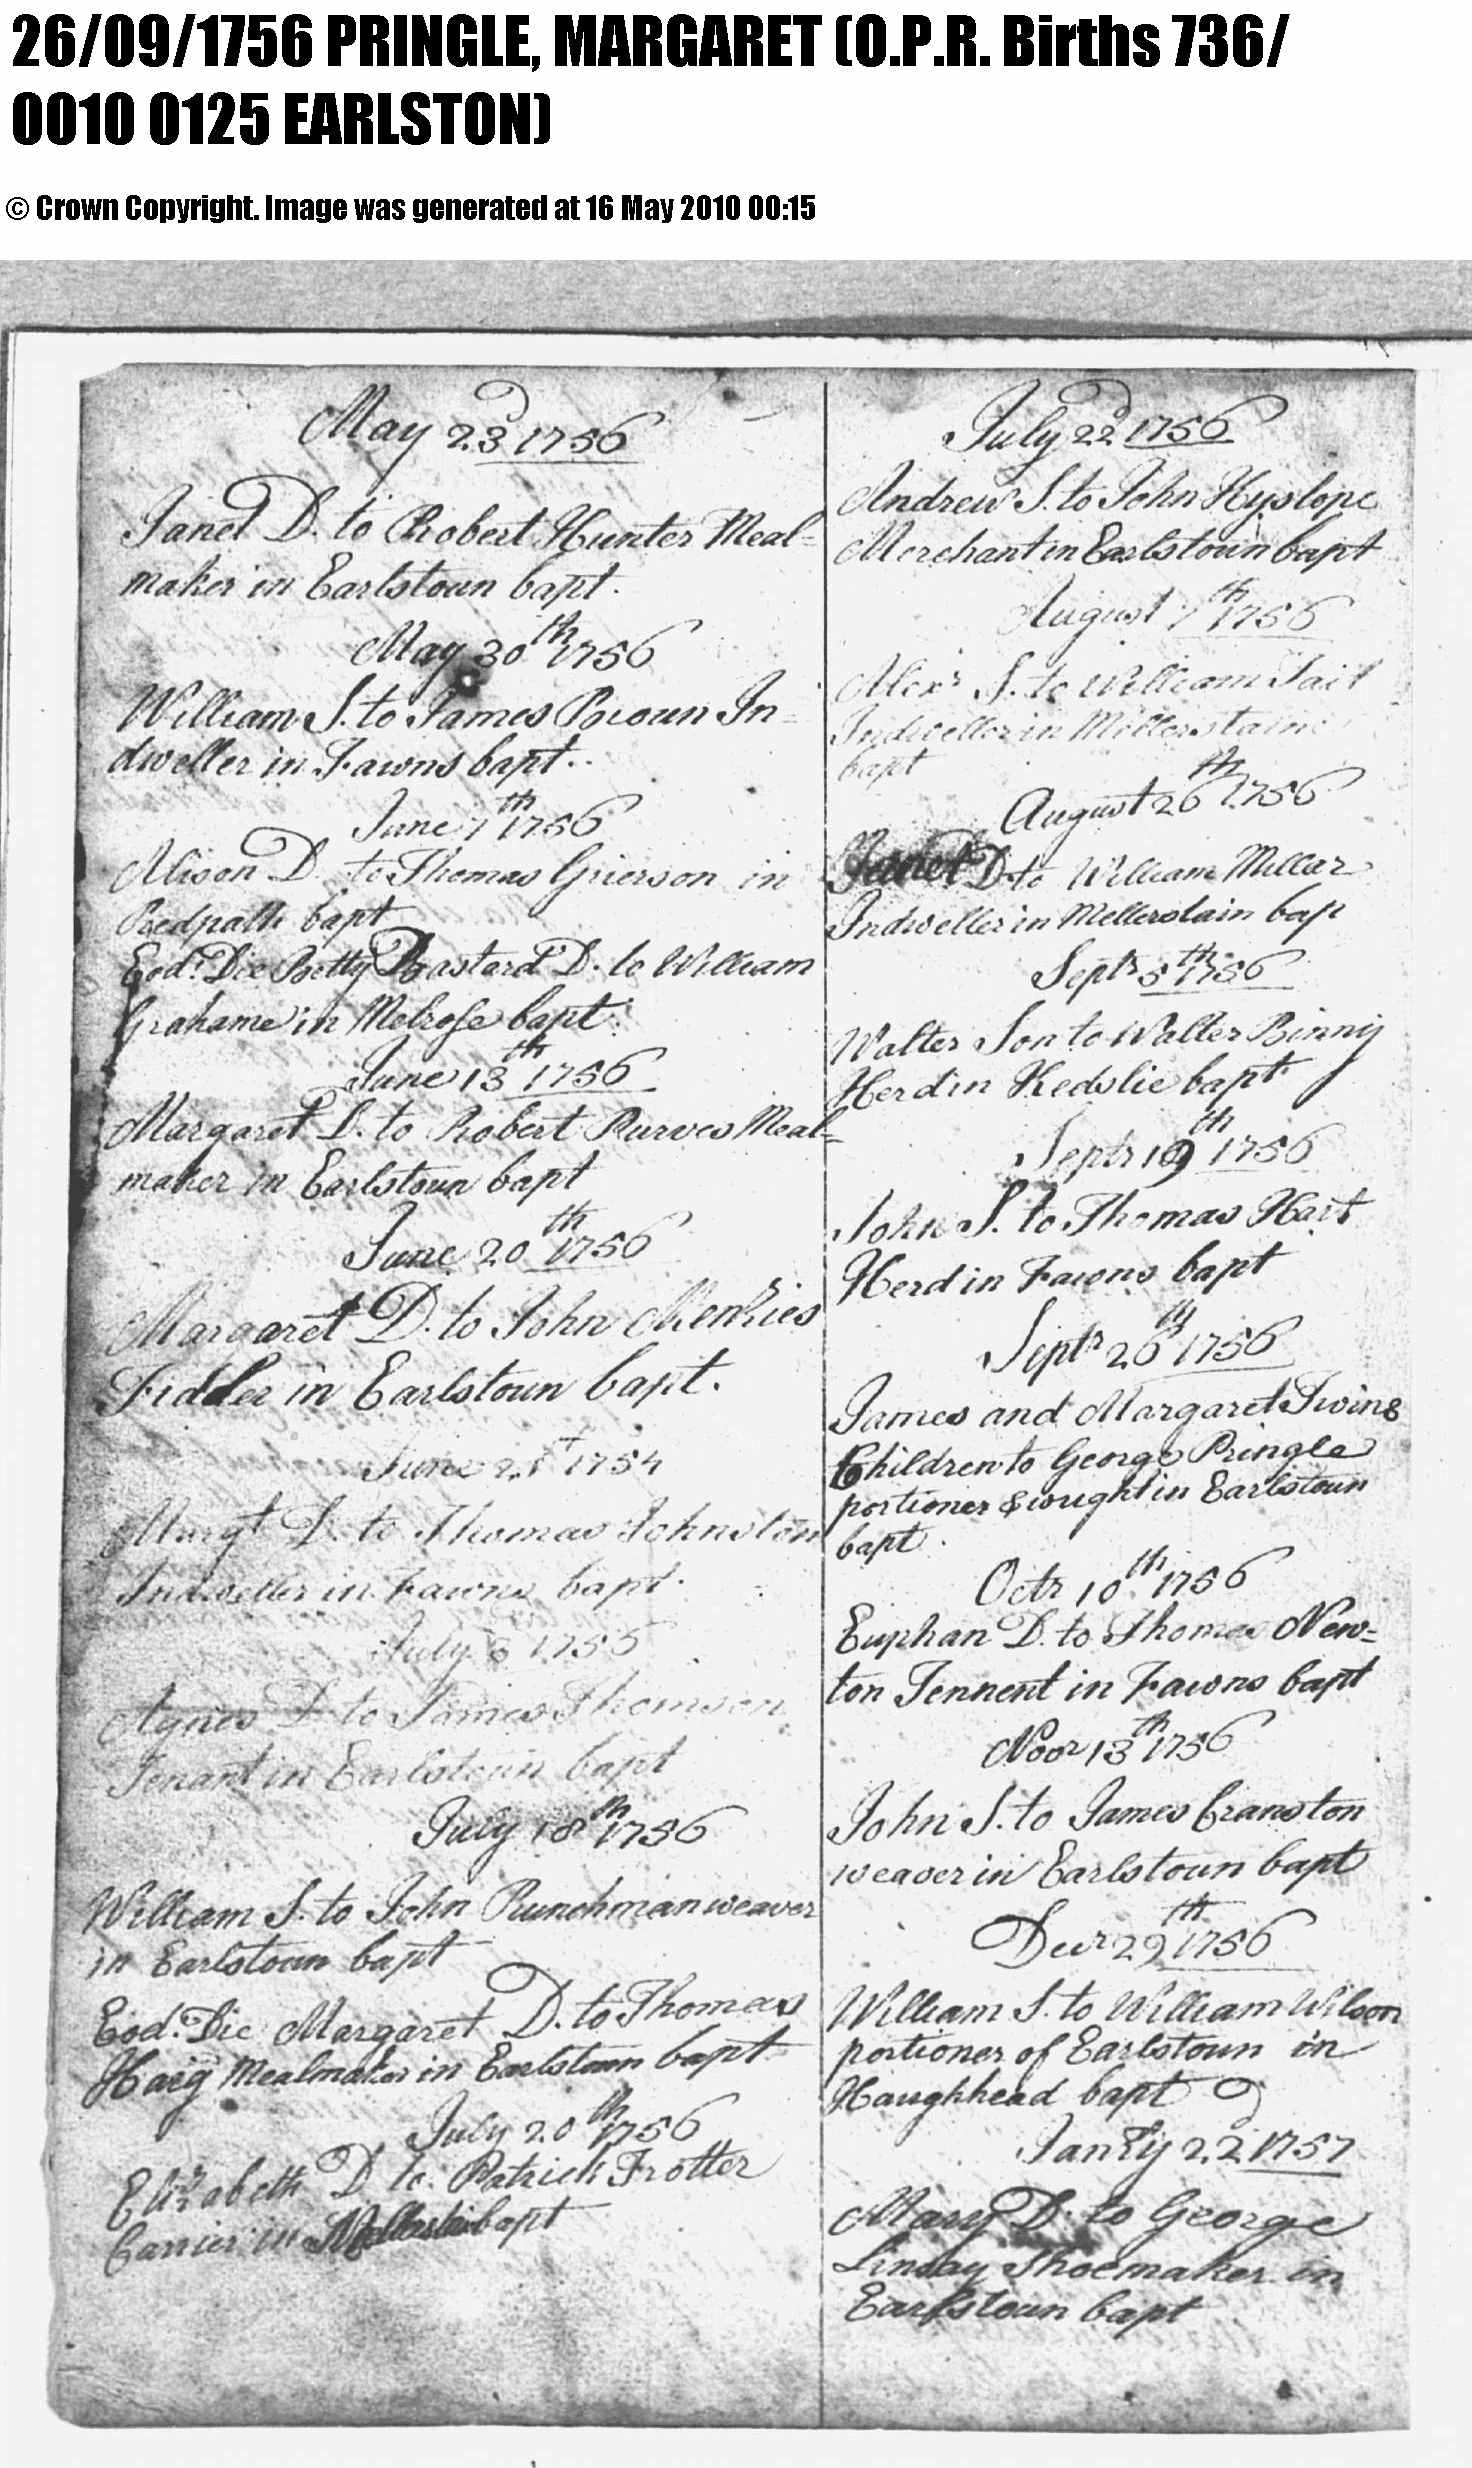 26/09/1756 PRINGLE, MARGARET (O.P.R. Births 736/
0010 0125 EARLSTON)
© Crown Copyright. Image was generated at 16 May 2010 00:15
May 23d 1756
Janet D. to Robert Hunter Meal-
maker in Earlstoun bapt.
May 30th 1756
William S. to James Broun In-
dweller in Fawns bapt.
June 7th 1756
Alison D. to Thomas Grierson in
Redpath bapt
Eod. Die Betty Bastard D. to William
Grahame in Melrose bapt.
June 13th 1756
Margaret D. to Robert Purves Meal-
maker in Earlstoun bapt
June 20th 1756
Margaret D. to John Menzies
Fidler in Earlstoun bapt.
June 21t 1754
Margt D. to Thomas Johnston
Indweller in Fawns bapt.
July 6 1755
Agnes D to James Thomson
Tenant in Earlstoun bapt
July 18th 1756
William S. to John Runchman weaver
in Earlstoun bapt
Eod. Die Margaret D. to Thomas
Haig Mealmaker in Earlstoun bapt
July 20th 1756
Elizabeth D to Patrick Trotter
Carrier in bapt
July 22d 1756
Andrew S. to John Hyslope
Merchant in Earlstoun bapt
August 7th 1756
Alexr S. to William Tait
Indweller in Mellerstain
bapt
August 26th 1756
Janet D. to William Millar
Indweller in Mellerstain bap
Septr 5th 1756
Walter Son to Walter Binny
Herd in Kedslie bapt
Septr 19th 1756
John S. to Thomas Hart
Herd in Fawns bapt
Septr 26th 1756
James and Margaret Twins
Children to George Pringle
portioner & wright in Earlstoun
bapt.
Octr 10th 1756
Euphan D. to Thomas New-
ton Tennent in Fawns bapt
Novr 13th 1756
John S. to James Cranston
weaver in Earlstoun bapt
Decr 29th 1756
William S. to William Wilson
portioner of Earlstoun in
Haughhead bapt
Janry 22d 1757
Mary D. to George
Linday Shoemaker in
Earlstoun bapt